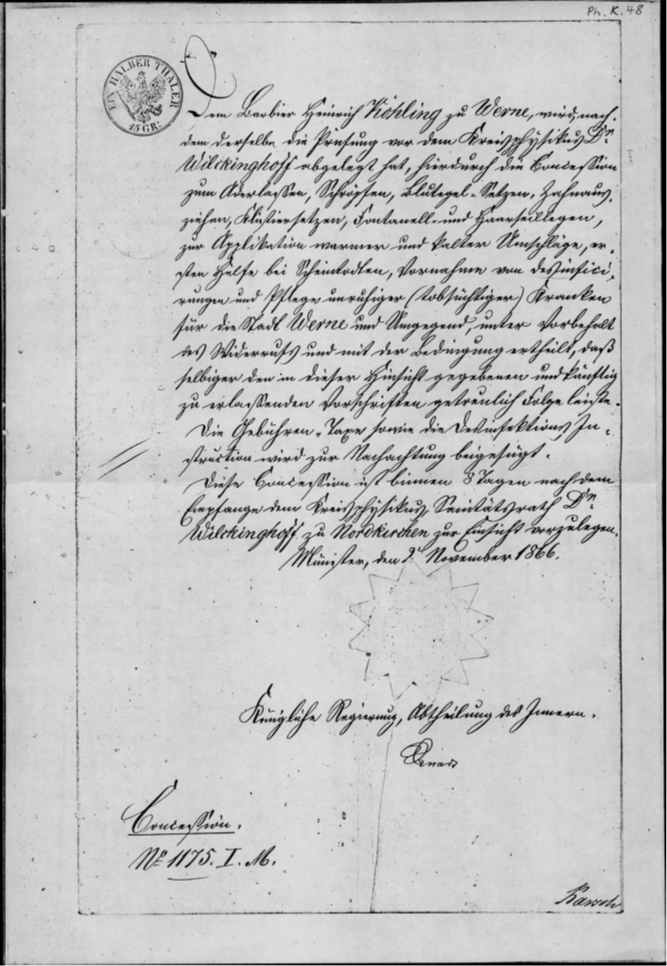 Ph. K. 48
EIN HALBER THALER
15 GR.
Dem Barbier Heinrich Köhling zu Werne, wird, nach-
dem derselbe die Prüfung vor dem Kreisphysikus Dr.
Wilckinghoff abgelegt hat, hierdurch die Concession
zum Aderlassen, Schröpfen, Blutegel-Setzen, Zahnaus-
ziehen, Klistiersetzen, Fontanell- und Haarseillegen,
zur Applikation warmer und kalter Umschläge, er-
sten Hülfe bei Scheintodten, Vornahme von Desinfici-
rungen und Pflege unruhiger (tobsüchtiger) Kranken
für die Stadt Werne und Umgegend, unter Vorbehalt
des Widerrufs und mit der Bedingung ertheilt, daß
selbiger den in dieser Hinsicht gegebenen und künftig
zu erlassenden Vorschriften getreulich Folge leiste.
Die Gebühren-Taxe sowie die Desinfektions In-
struction wird zur Nachachtung beigefügt.
Diese Concession ist binnen 8 Tagen nach dem
Empfange dem Kreisphysikus Sanitätsrath Dr.
Wilckinghoff zu Nordkirchen zur Einsicht vorzulegen.
Münster, den 2. November 1866.
Königliche Regierung, Abtheilung des Innern.
Concession.
No 1175. I. M.